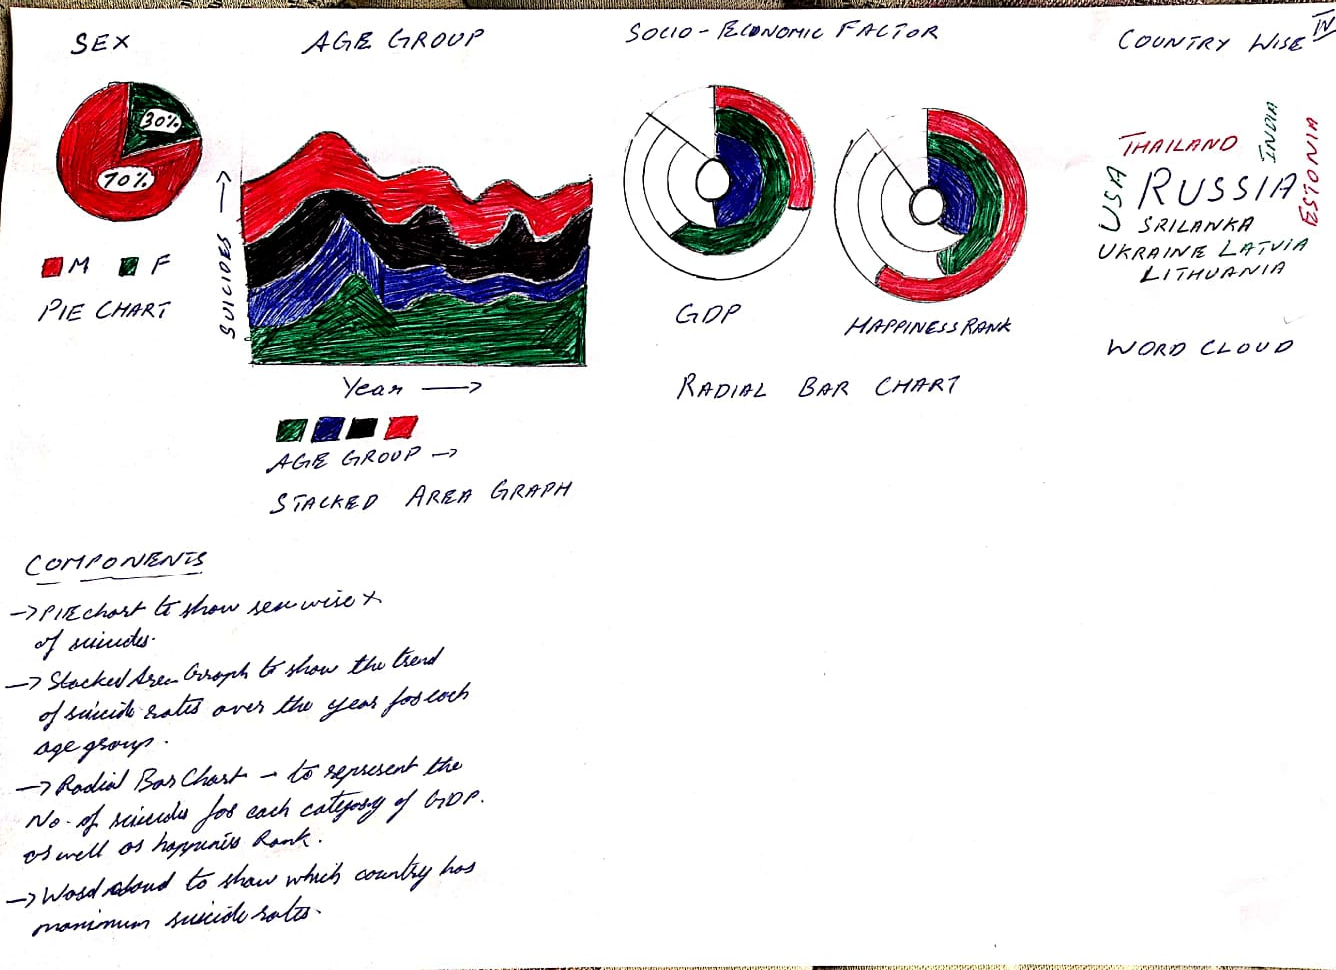 SEX
AGE GROUP
SOCIO-ECONOMIC FACTOR
COUNTRY WISE
IV
30%
70%
M F
PIE CHART
SUICIDES
Year
AGE GROUP
STACKED AREA GRAPH
GDP
HAPPINESS RANK
RADIAL BAR CHART
THAILAND
INDIA
ESTONIA
USA
RUSSIA
SRILANKA
UKRAINE LATVIA
LITHUANIA
WORD CLOUD
COMPONENTS
→ PIE chart to show sex wise
of suicides.
→ Stacked Area Graph to show the trend
of suicide rates over the year for each
age group.
→ Radial Bar Chart - to represent the
No. of suicides for each category of GDP.
as well as happiness Rank.
→ Word cloud to show which country has
maximum suicide rates.